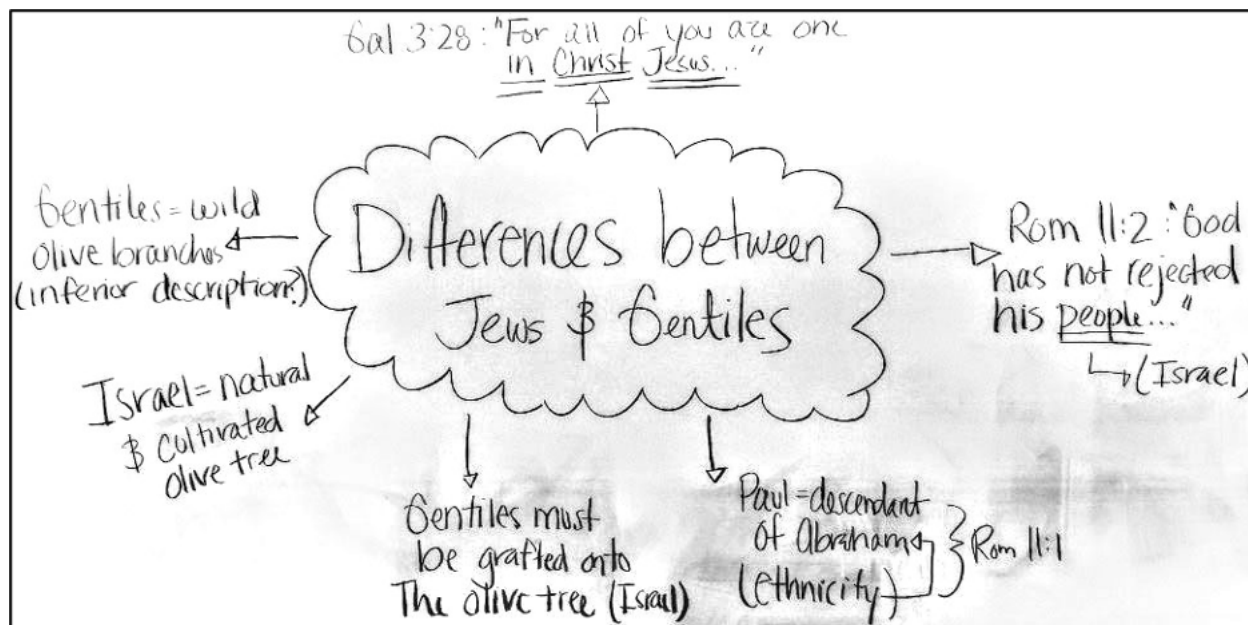 Gal 3:28: "For all of you are one
in Christ Jesus..."
Differences between
Jews & Gentiles
Gentiles = wild
olive branches
(inferior description?)
Israel = natural
& cultivated
olive tree
Gentiles must
be grafted onto
The olive tree (Israel)
Paul = descendant
of Abraham
(ethnicity)
Rom 11:1
Rom 11:2 : "God
has not rejected
his people..."
(Israel)